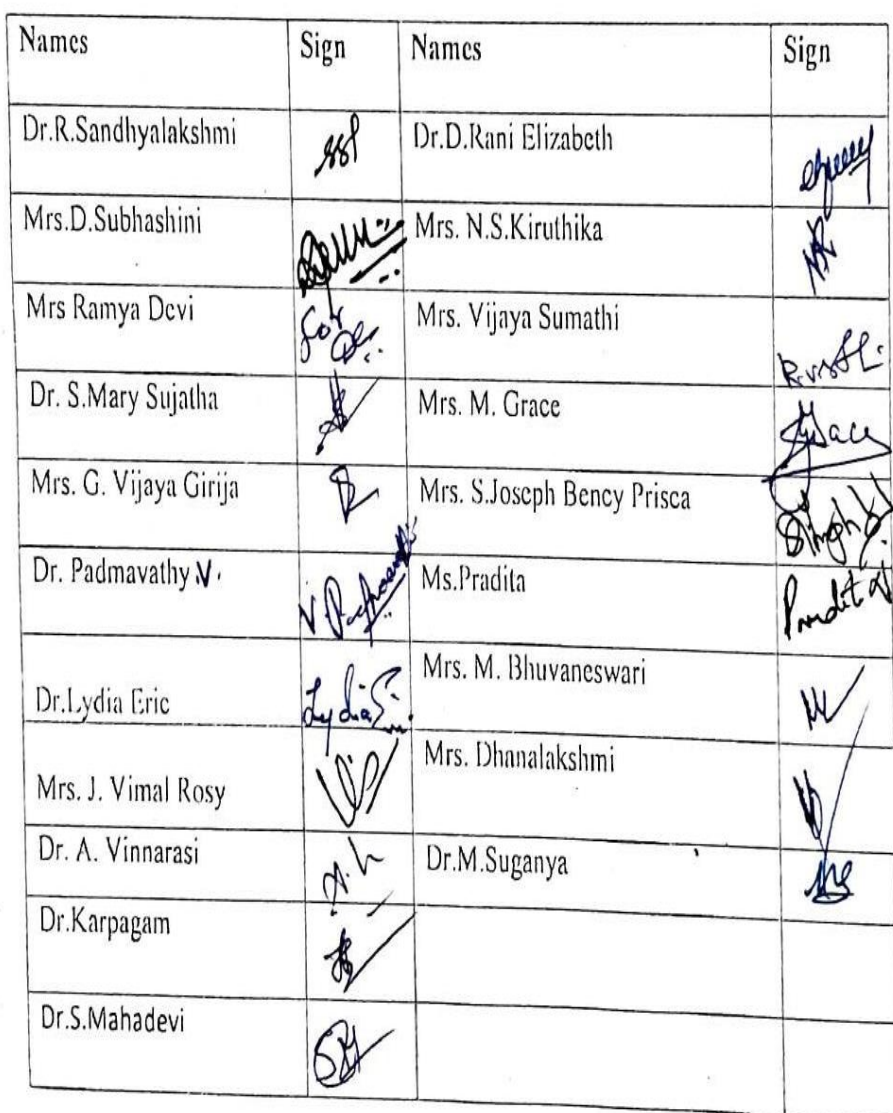 Names Sign Names Sign
Dr.R.Sandhyalakshmi Dr.D.Rani Elizabeth
Mrs.D.Subhashini Mrs. N.S.Kiruthika
Mrs Ramya Devi for Mrs. Vijaya Sumathi
Dr. S.Mary Sujatha Mrs. M. Grace Grace
Mrs. G. Vijaya Girija Mrs. S.Joseph Bency Prisca
Dr. Padmavathy.V. Ms.Pradita
Dr.Lydia Eric Lydia Mrs. M. Bhuvaneswari
Mrs. J. Vimal Rosy Mrs. Dhanalakshmi
Dr. A. Vinnarasi Dr.M.Suganya
Dr.Karpagam
Dr.S.Mahadevi